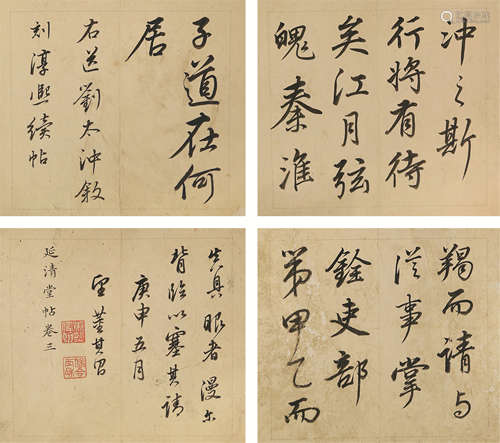 冲之斯
行將有待
矣江月弦
魄秦淮
子道在何
居
右送劉太沖敘
刻淳熙續帖
羯而請与
從事掌
銓吏部
第甲乙而
具眼者漫尔
背臨以塞其請
庚申五月
望董其昌
延清堂帖卷三